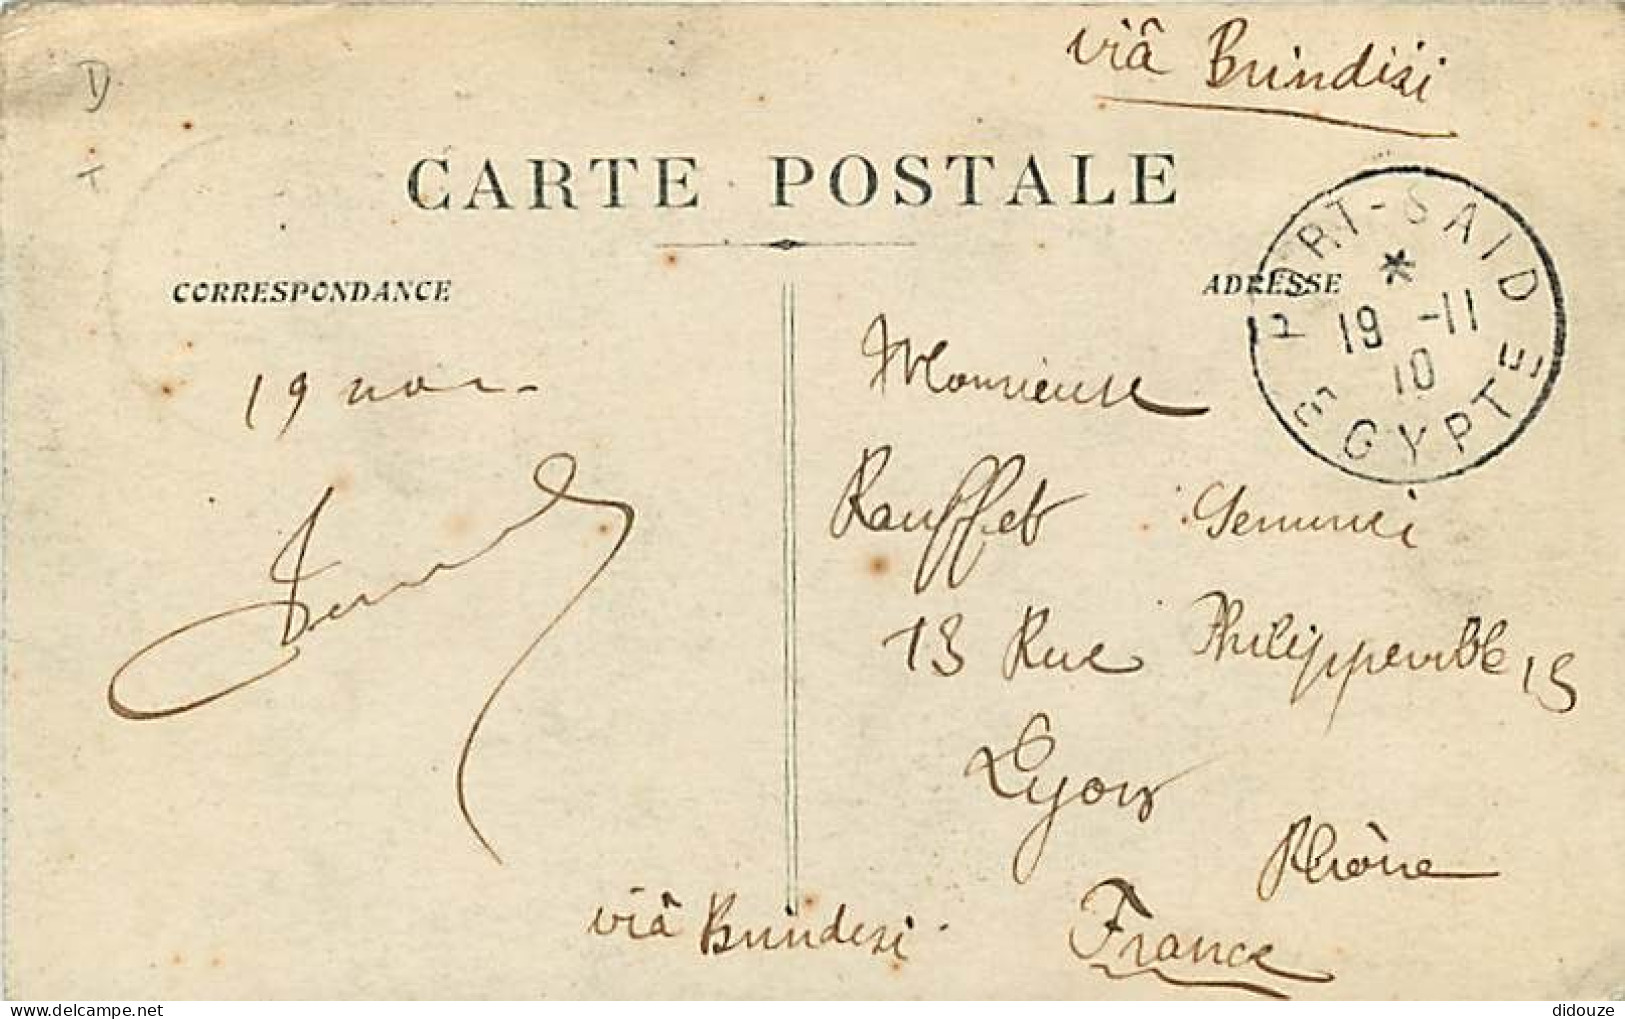 viâ Brindisi
CARTE POSTALE
CORRESPONDANCE
ADRESSE
PORT-SAID
*
19 -11
10
EGYPTE
19 nov
Monsieur
Rauffet
13 Rue Philippeville 13
Lyon
Rhône
France
viâ Brindisi
didouze